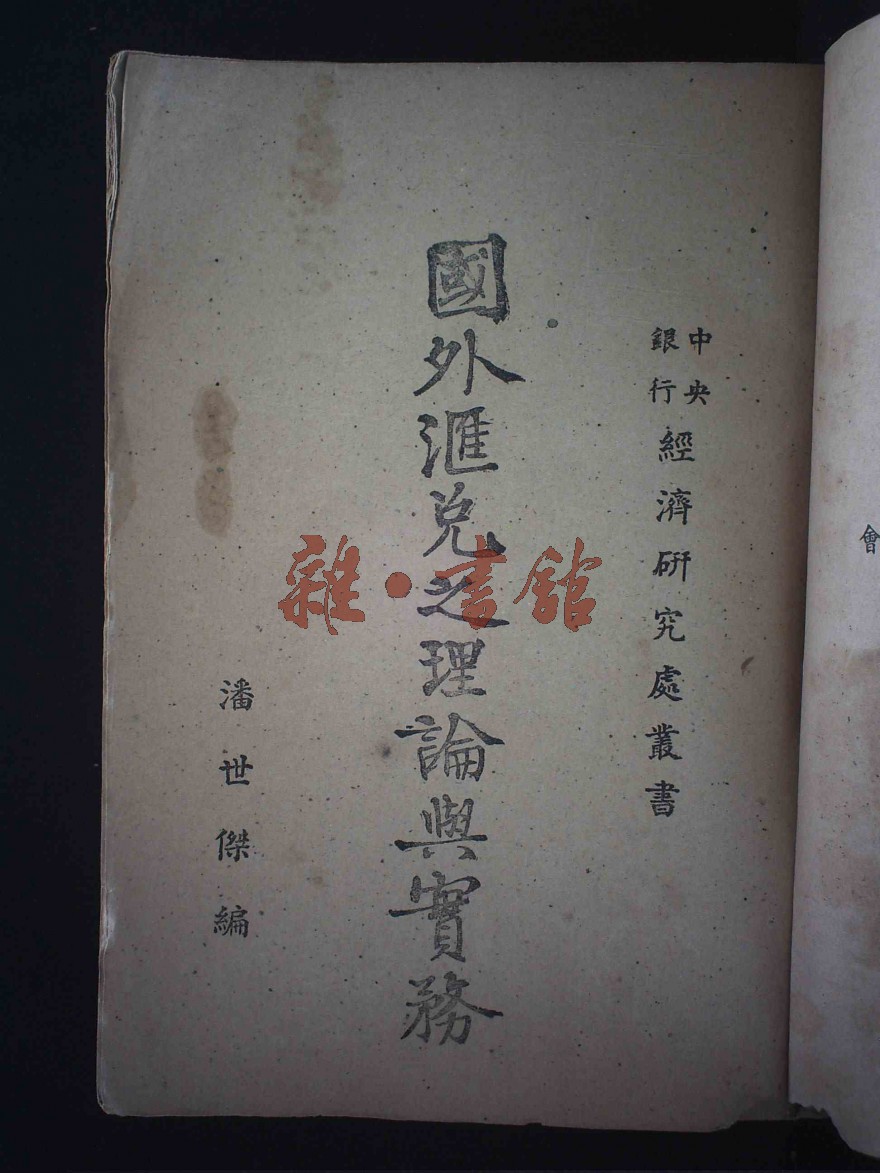 中央銀行經濟研究處叢書
國外滙兌之理論與實務
潘世傑編
雜·書舘
會